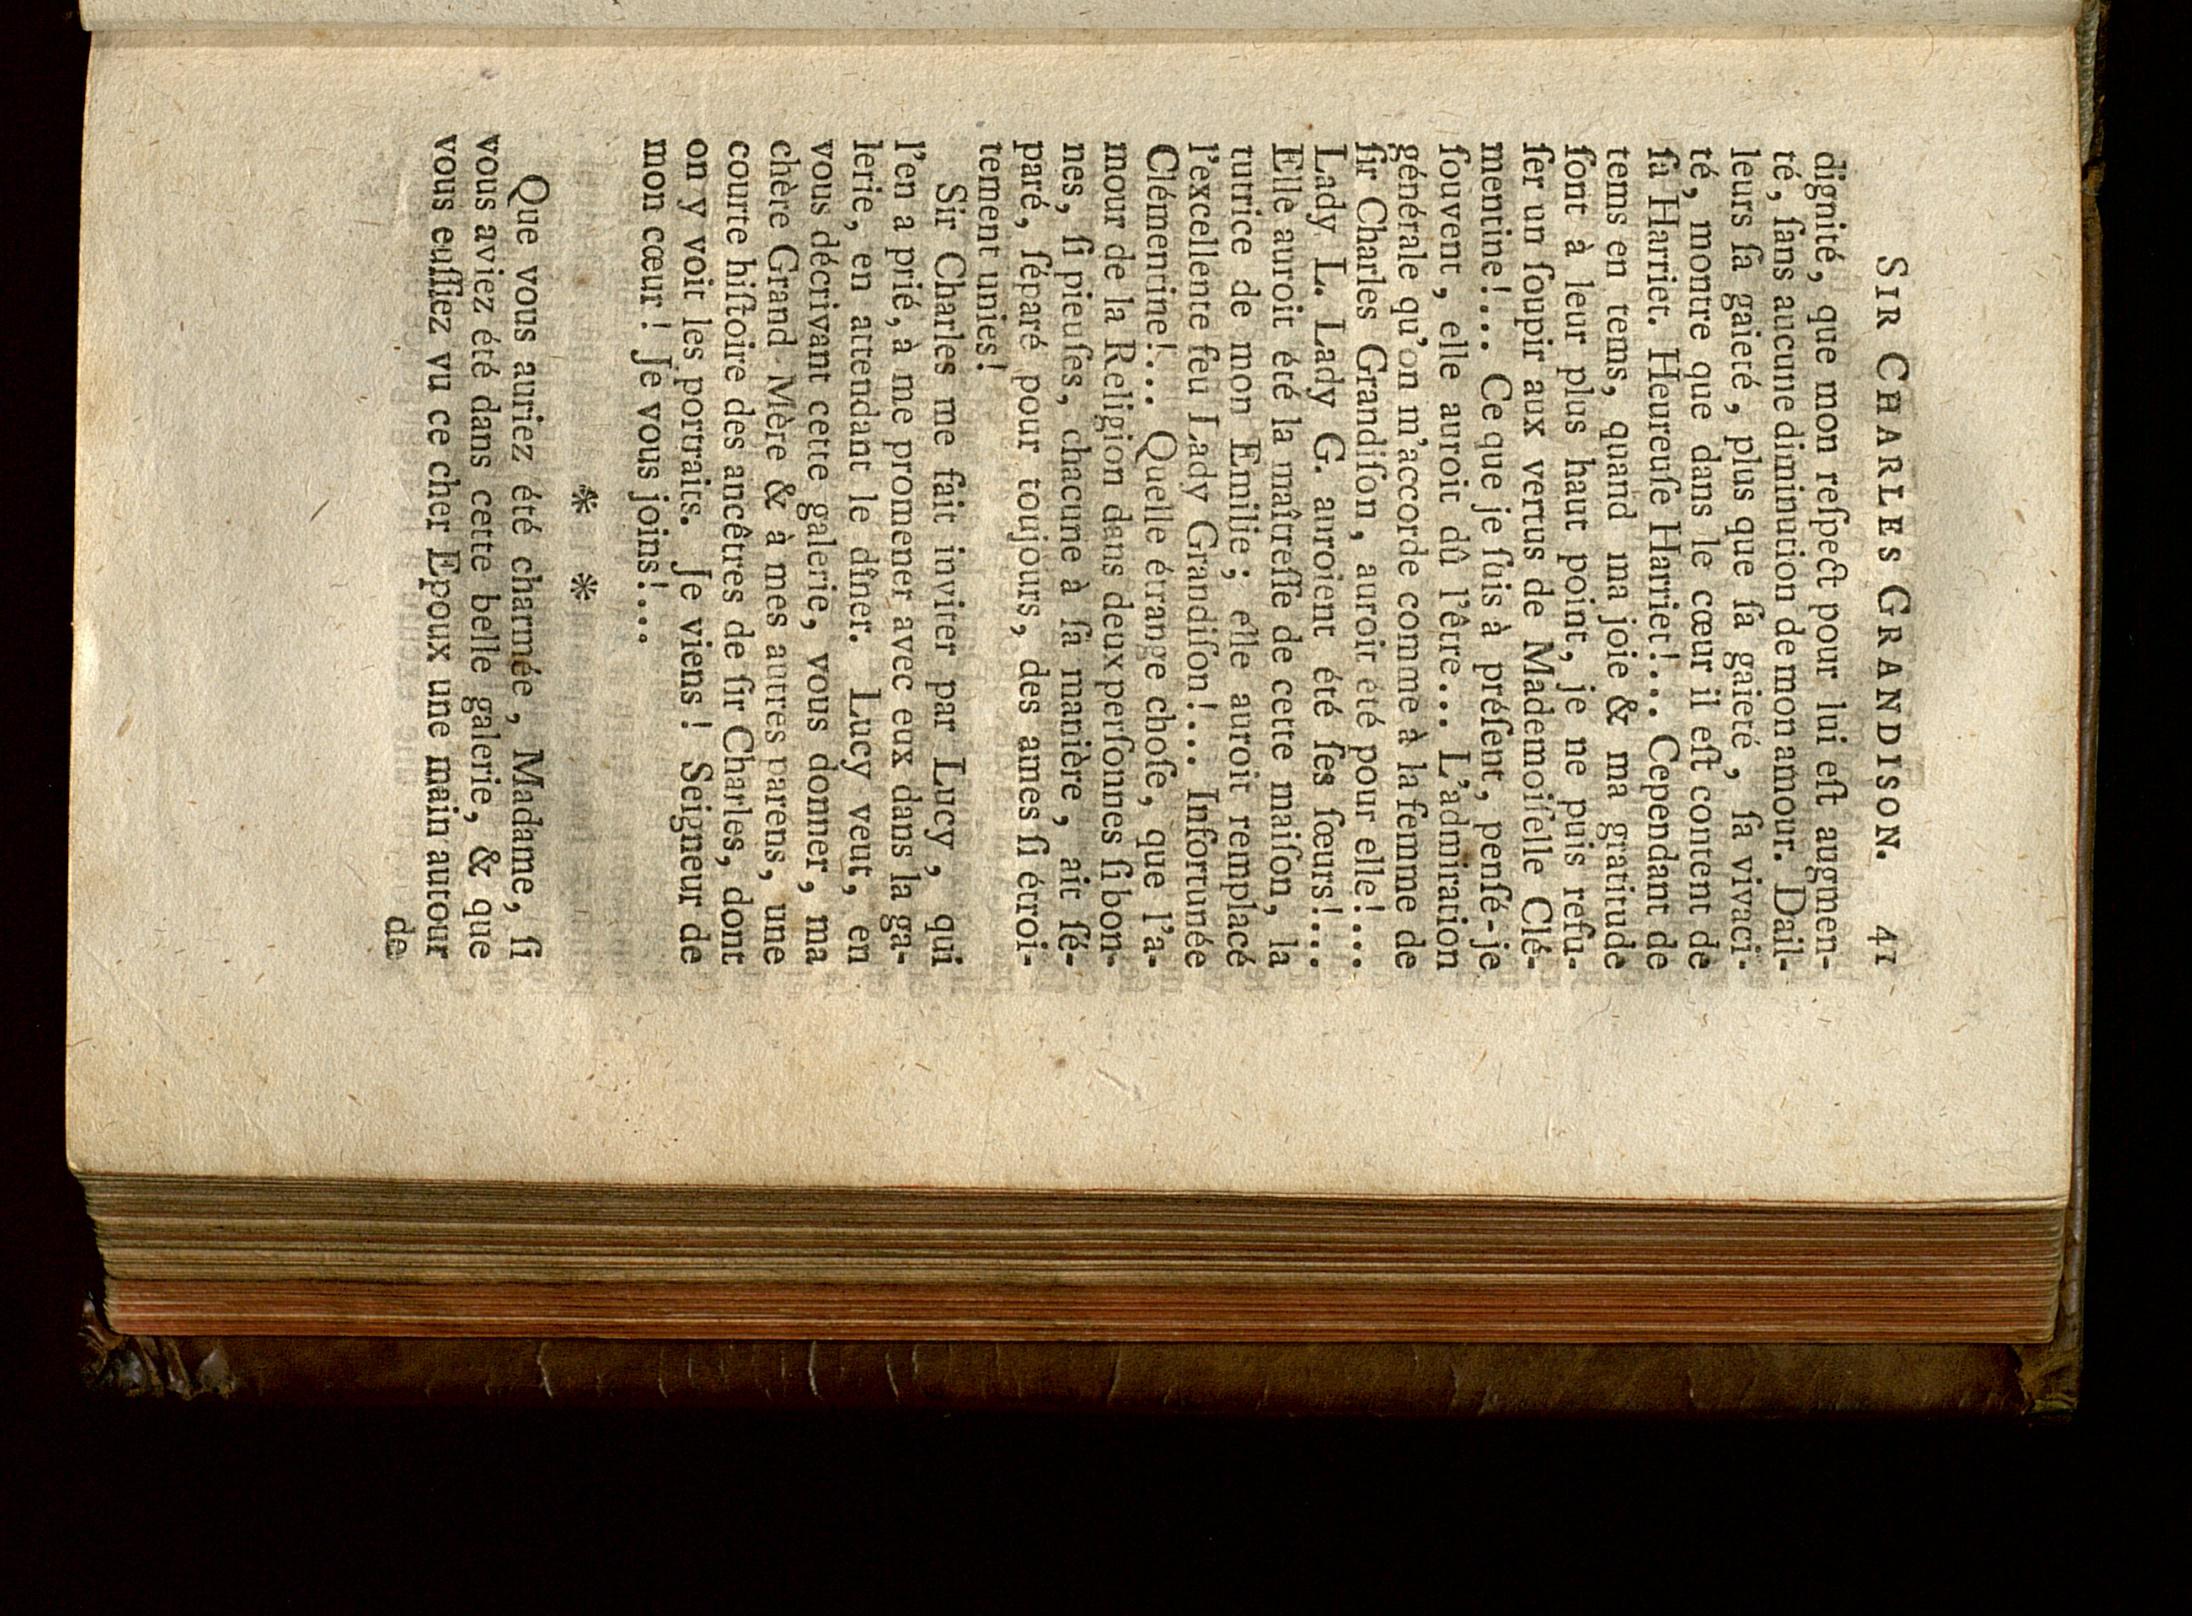 SIR CHARLES GRANDISON. 41
dignité, que mon reſpect pour lui eſt augmen-
té, ſans aucune diminution de mon amour. Dail-
leurs ſa gaieté, plus que ſa gaieté, ſa vivaci-
té, montre que dans le cœur il eſt content de
ſa Harriet. Heureuſe Harriet!... Cependant de
tems en tems, quand ma joie & ma gratitude
ſont à leur plus haut point, je ne puis refu-
ſer un ſoupir aux vertus de Mademoiſelle Clé-
mentine!... Ce que je ſuis à préſent, penſé-je
ſouvent, elle auroit dû l'être... L'admiration
générale qu'on m'accorde comme à la femme de
ſir Charles Grandiſon, auroit été pour elle!...
Lady L. Lady G. auroient été ſes ſœurs!...
Elle auroit été la maîtreſſe de cette maiſon, la
tutrice de mon Emilie; elle auroit remplacé
l'excellente feu Lady Grandiſon!... Infortunée
Clémentine!... Quelle étrange choſe, que l'a-
mour de la Religion dans deux perſonnes ſi bon-
nes, ſi pieuſes, chacune à ſa manière, ait ſé-
paré, ſéparé pour toujours, des ames ſi étroi-
tement unies!
Sir Charles me fait inviter par Lucy, qui
l'en a prié, à me promener avec eux dans la ga-
lerie, en attendant le dîner. Lucy veut, en
vous décrivant cette galerie, vous donner, ma
chère Grand-Mère & à mes autres parens, une
courte hiſtoire des ancêtres de ſir Charles, dont
on y voit les portraits. Je viens! Seigneur de
mon cœur! Je vous joins!...
* *
Que vous auriez été charmée, Madame, ſi
vous aviez été dans cette belle galerie, & que
vous euſſiez vu ce cher Epoux une main autour
de